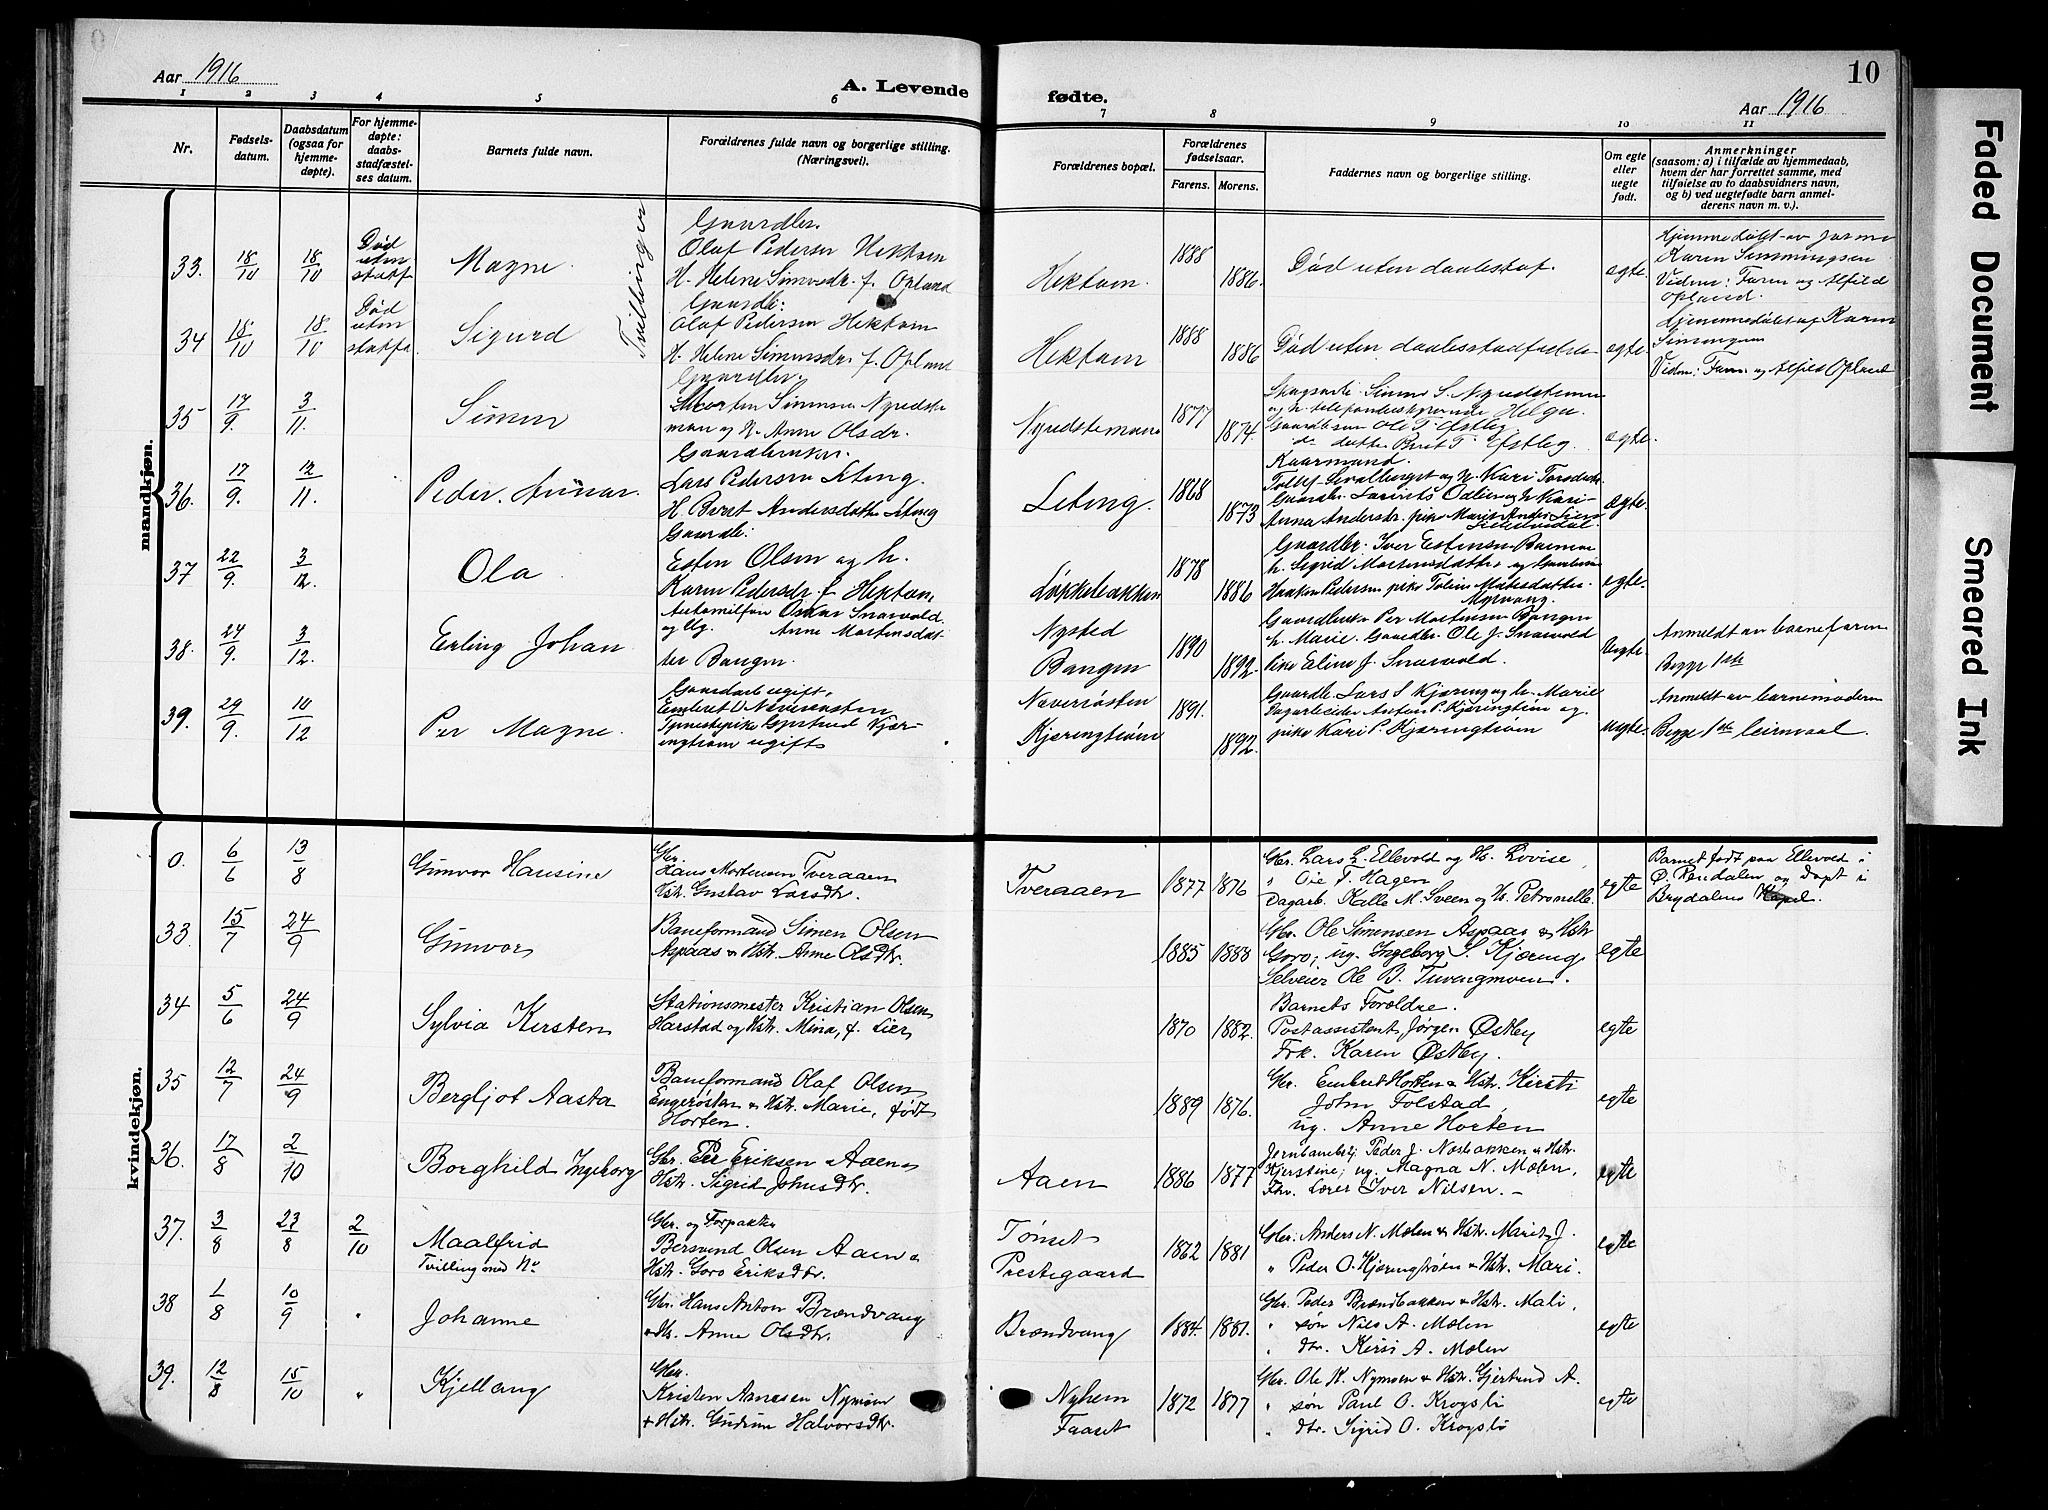 Aar 1916
A. Levende
fødte.
Aar 1916
10
1 2 3 4 5 6 7 8 9 10 11
Nr.
Fødsels-
datum.
Daabsdatum
(ogsaa for
hjemme-
døpte).
For hjemme-
døpte:
daabs-
stadfæstel-
ses datum.
Barnets fulde navn.
Forældrenes fulde navn og borgerlige stilling.
(Næringsvei).
Forældrenes bopæl.
Forældrenes
fødselsaar.
Farens. Morens.
Faddernes navn og borgerlige stilling.
Om egte
eller
uegte
født.
Anmerkninger
(saasom: a) i tilfælde av hjemmedaab,
hvem der har forrettet samme, med
tilføielse av to daabsvidners navn,
og b) ved uegtefødte barn anmel-
derens navn m. v.).
mandkjøn.
Tvillinger
33. 18/10 18/10
Død
uten
Magne
Gaardbr.
Olaf Pedersen Hektoen
H. Helene Simensdr. f. Opland
Hektoen 1888 1886.
Død uten daabsstaf.
egte
Hjemmedøbt av jormo
Karen Simmingsen
Vidner: Faren og Alfild
Opland.
34 18/10 18/10
Død
uten
Sigurd
Gaardb:
Olaf Pedersen Hektoen
H. Helene Simensdr. f. Opland
Hektoen 1888 1886
Død uten daabsstadfestelse
egte
Hjemmedøbt af Karen
Vidner: Faren og Alfild Opland
35 17/9. 3/11.
Simen
Gaardbr.
Morten Simensen Nyredste
moen og H. Anne Olsdr.
1877 1874.
Gaardbrsøn Ole T. Østby.
do datter Brit T. Østby.
egte.
36. 17/9. 12/11.
Peder. Annar
Gaardbruker.
Lars Pedersen Eteng.
H. Berit Andersdatter Eteng
1868 1873
Kaarmand.
egte.
37 22/9. 3/12.
Ola
Gaardb:
Esten Olsen og h.
Karen Pedersdr f Hektoen
Løkkebakken 1878 1886
Gaardbr. Iver Estensen
h. Sigrid Mortensdatter og
Haaken Pedersen pike Toline Matesdatter
egte.
38. 24/9. 3/12.
Erling Johan
Oskar Snarvold.
og Ug. Anne Mortensdat
ter Bangen.
Nysted
Bangen
1890 1892.
Gaardbruker Per Mortensen Bangen
h. Marie. Gaardbr. Ole J. Snarvold
pike Eline J. Snarvold.
Uegte.
Anmeldt av barnefaren
Begge 1ste
39. 29/9. 10/12
Per Magne.
Gaardarb ugift.
Embret O Neverøsten
Tjenestepike Gjertrud Kjær-
ingtrøen ugift
Neverøsten
Kjæringtrøen
1891. 1892.
Gaardbr. Lars S Kjæring og h. Marie
Dagarbeider Anton P. Kjæringtrøen og
pike Kari P. Kjæringtrøen
uegte
Anmeldt av barnemoderen
Begge 1ste leiermaal.
kvindekjøn.
0. 6/6 13/8
Gunvor Hansine
Gbr.
Hans Mortensen Tveraaen
Hstr. Gustav Larsdtr.
Tveraaen 1877 1876
Gbr. Lars L. Ellevold og H. Lovise,
" Ole T. Hagen
Dagarb. Kalle M. Sveen og H. Petronelle.
egte
Barnet født paa Ellevold i
Ø. Rendalen og døpt i
Brydalens Kapel.
33. 15/7 24/9
Gunvor
Baneformand Simen Olsen
Aspaas & Hstr. Anne Olsdtr.
1885 1888
Gbr. Ole Simensen Aspaas & Hstr
Goro; ug. Ingeborg S. Kjæring,
Selveier Ole B. Tuvengmoen.
egte
34 5/6 24/9
Sylvia Kirsten
Stationsmester Kristian Olsen
Harstad og Hstr. Mina, f. Lier
1870 1882.
Barnets Forældre.
Postassistent, Jørgen Østby
Frk. Karen Østby.
egte
35 12/7 24/9
Bergljot Aasta
Baneformand Olaf Olsen
Engerøsten & Hstr. Marie, født
Horten.
1889 1876.
Gbr. Embret Horten & Hstr. Kirsti
John Tolstad,
ug. Anne Horten
egte
36. 17/8 2/10
Borghild Ingeborg
Gbr. Per Eriksen Aaen &
Hstr. Sigrid Johnsdtr.
Aaen 1886 1877
Jernbanebtj. Peder J. Næsbakken & Hstr.
Kjerstine; ug. Magna N. Moen,
Fhv. Lærer Iver Nilsen. -
egte
37. 3/8 23/8 2/10
Maalfrid
Tvilling med No
Gbr. og Forpakter
Bersvend Olsen Aaen &
Hstr. Goro Eriksdtr.
Tønset
Prestegaard
1862 1881
Gbr. Anders N. Moen & Hstr. Marit J.
" Peder O. Kjæringtrøen & Hstr. Mari.
egte
38 1/8 10/9 "
Johanne
Gbr. Hans Anton Brændvang
& Hstr. Anne Olsdtr.
Brændvang 1884. 1881.
Gbr. Peder Brændbakken & Hstr. Mali,
" søn Nils A. Moen
" dtr. Kirsi A. Moen
egte
39. 12/8 15/10 "
Kjellaug
Gbr.
Kristen Arnesen Nymoen
& Hstr. Gudrun Halvorsdtr.
Nyhem
Faaset
1872 1877
Gbr. Ole K. Nymoen & Hstr. Gjertrud A.
" søn Paul O. Krogsli
" dtr. Sigrid O. Krogsli
egte
Faded Document
Smeared Ink